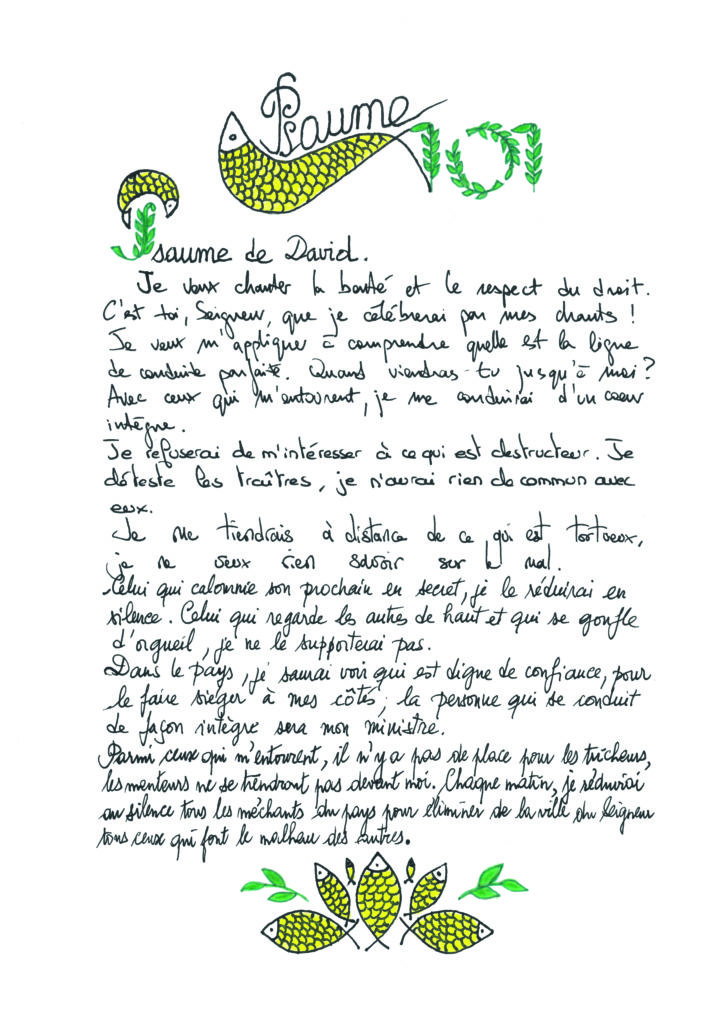 Psaume 101
Psaume de David.
Je veux chanter la bonté et le respect du droit.
C'est toi, Seigneur, que je célébrerai par mes chants !
Je veux m'appliquer à comprendre quelle est la ligne
de conduite parfaite. Quand viendras-tu jusqu'à moi ?
Avec ceux qui m'entourent, je me conduirai d'un coeur
intègre.
Je refuserai de m'intéresser à ce qui est destructeur. Je
déteste les traîtres, je n'aurai rien de commun avec
eux.
Je me tiendrais à distance de ce qui est tortueux,
je ne veux rien savoir sur le mal.
Celui qui calomnie son prochain en secret, je le réduirai en
silence. Celui qui regarde les autres de haut et qui se gonfle
d'orgueil, je ne le supporterai pas.
Dans le pays, je saurai voir qui est digne de confiance, pour
le faire sieger à mes côtés ; la personne qui se conduit
de façon intègre sera mon ministre.
Parmi ceux qui m'entourent, il n'y a pas de place pour les tricheurs,
les menteurs ne se tiendront pas devant moi. Chaque matin, je réduirai
au silence tous les méchants du pays pour éliminer de la ville du Seigneur
tous ceux qui font le malheu des autres.